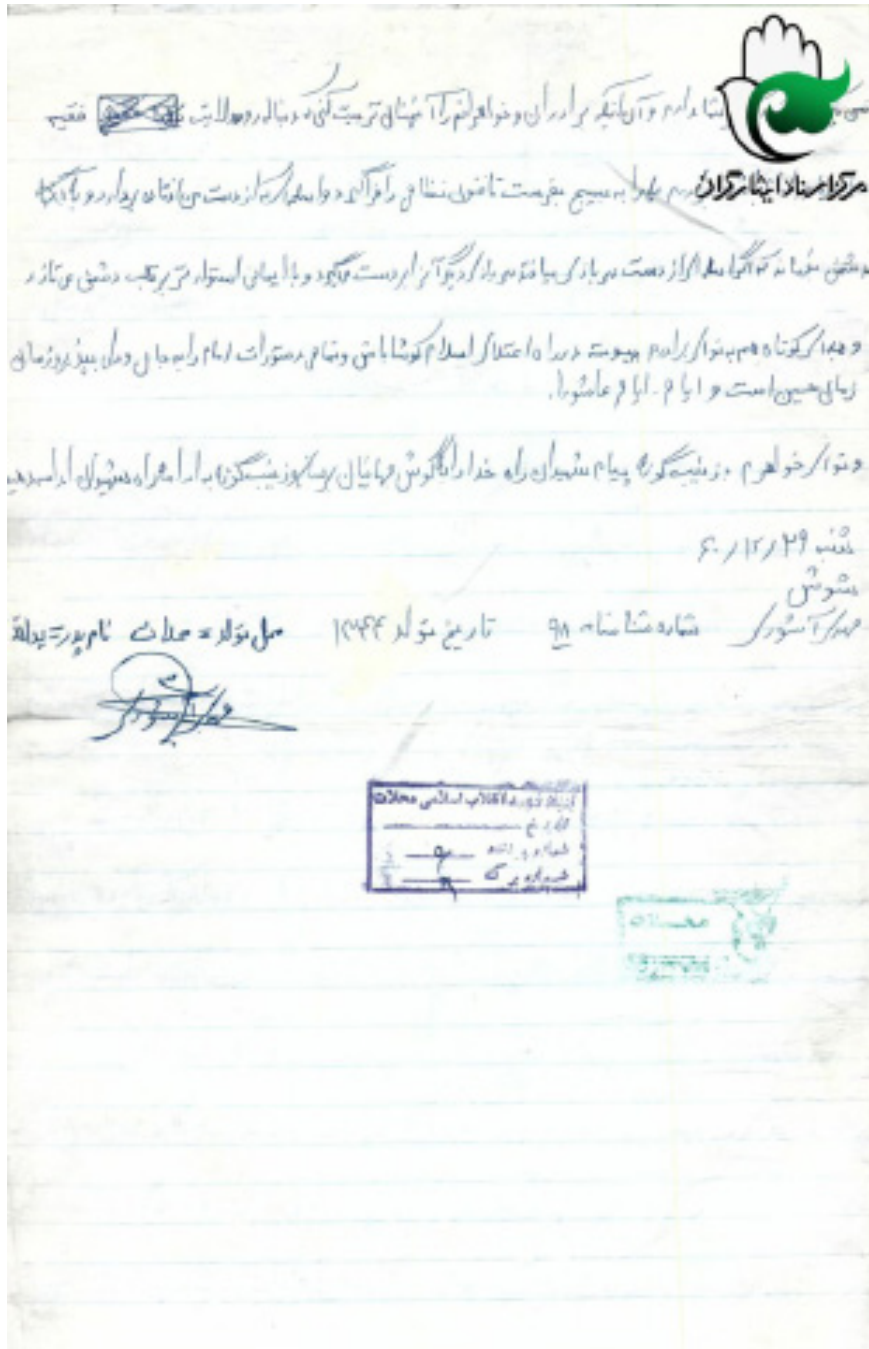 مرکز اسناد ایثارگران
دارم و آن اینکه برادران و خواهرانم را آنچنان تربیت کنی که دنباله رو ولایت فقیه
به بسیج بفرست تا فنون نظامی را فراگیرد و اسلحه از دست من افتاده بردارد و
دشمن که اگر اسلحه از دست سربازی بیافتد سرباز دیگر آنرا بردست میگیرد و با ایمانی استوارتر بر قلب دشمن می تازد
و کوتاه هم به تو ای برادرم پیوسته در راه اعتلای اسلام کوشا باش و تمامی دستورات امام را به جان و دل بپذیر و زمان
زمان حسین است و ایام ایام عاشورا.
و تو ای خواهرم زینب گونه پیام شهیدان راه خدا را بگوش جهانیان برسان و زینب گونه به ادامه راه شهیدان ادامه دهید
شنبه ۶۰/۱۲/۲۹
شوش
شماره شناسنامه ۹۸ تاریخ تولد ۱۳۴۴ محل تولد = محلات نام پدر = یداله
بنیاد شهید انقلاب اسلامی محلات
تاریخ
شماره پرونده ۹
شماره برگ
محلات